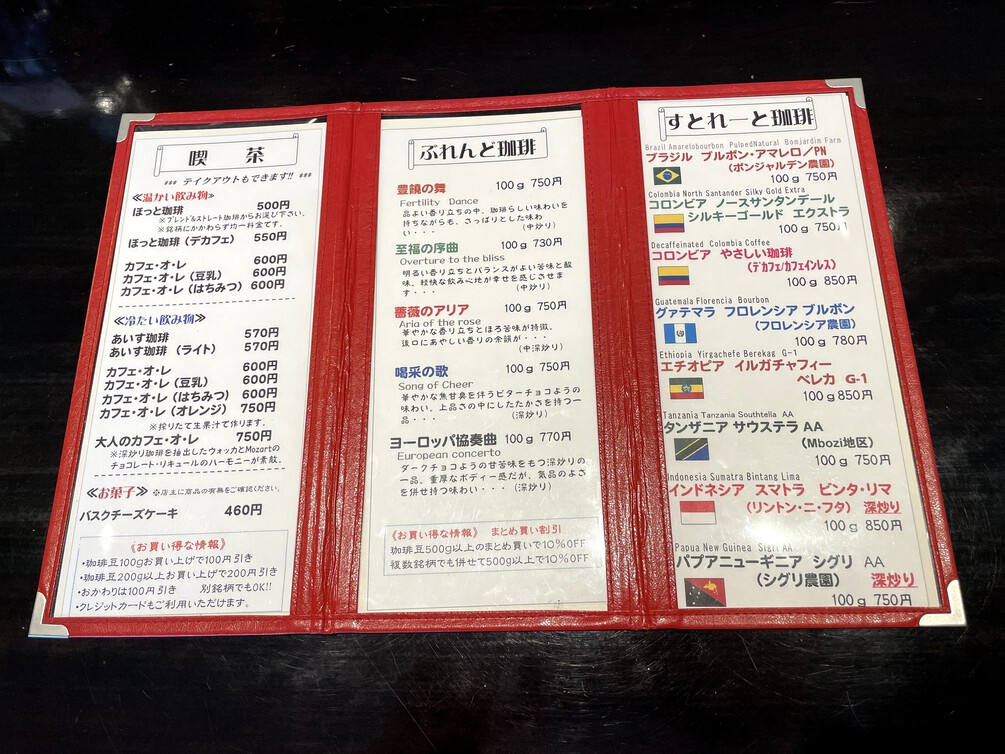 喫 茶
### テイクアウトもできます!! ###
≪温かい飲み物≫
ほっと珈琲 500円
※ブレンド&ストレート珈琲からお選び下さい。
※銘柄にかかわらず均一料金です。
ほっと珈琲（デカフェ） 550円
カフェ・オ・レ 600円
カフェ・オ・レ（豆乳） 600円
カフェ・オ・レ（はちみつ） 600円
≪冷たい飲み物≫
あいす珈琲 570円
あいす珈琲（ライト） 570円
カフェ・オ・レ 600円
カフェ・オ・レ（豆乳） 600円
カフェ・オ・レ（はちみつ） 600円
カフェ・オ・レ（オレンジ） 750円
※搾りたて生果汁で作ります。
大人のカフェ・オ・レ 750円
※深炒り珈琲を抽出したウォッカとMozartの
チョコレート・リキュールのハーモニーが素敵。
≪お菓子≫ ※店主に商品の有無をご確認ください。
バスクチーズケーキ 460円
《お買い得な情報》
・珈琲豆100gお買い上げで100円引き
・珈琲豆200g以上お買い上げで200円引き
・おかわりは100円引き 別銘柄でもOK!!
・クレジットカードもご利用いただけます。
ぶれんど珈琲
豊饒の舞 100g 750円
Fertility Dance
品よい香り立ちの中、珈琲らしい味わいを
持ちながらも、さっぱりとした味わ
い・・・ （中炒り）
至福の序曲 100g 730円
Overture to the bliss
明るい香り立ちとバランスがよい苦味と酸
味、軽快な飲み心地が幸せを感じさせま
す・・・ （中炒り）
薔薇のアリア 100g 750円
Aria of the rose
華やかな香り立ちとほろ苦味が特徴。
後口にあやしい香りの余韻が・・・
（中深炒り）
喝采の歌 100g 750円
Song of Cheer
華やかな焦甘臭を伴うビターチョコようの
味わい。上品さの中にしたたかさを持つ一
品・・・ （深炒り）
ヨーロッパ協奏曲 100g 770円
European concerto
ダークチョコようの甘苦味をもつ深炒りの
一品、重厚なボディー感だが、気品のよさ
を併せ持つ味わい・・・（深炒り）
《お買い得な情報》 まとめ買い割引
珈琲豆500g以上のまとめ買いで10％OFF
複数銘柄でも併せて500g以上で10％OFF
すとれーと珈琲
Brazil Amarelobourbon PulpedNatural Bomjardim Farm
ブラジル ブルボン・アマレロ／PN
（ボンジャルデン農園）
100g 750円
Colombia North Santander Silky Gold Extra
コロンビア ノースサンタンデール
シルキーゴールド エクストラ
100g 750円
Decaffeinated Colombia Coffee
コロンビア やさしい珈琲
（デカフェ/カフェインレス）
100g 850円
Guatemala Florencia Bourbon
グァテマラ フロレンシア ブルボン
（フロレンシア農園）
100g 780円
Ethiopia Yirgachefe Berekag G-1
エチオピア イルガチャフィー
ベレカ G-1
100g 850円
Tanzania Tanzania Southtella AA
タンザニア サウステラ AA
（Mbozi地区）
100g 750円
Indonesia Sumatra Bintang Lima
インドネシア スマトラ ビンタ・リマ
（リントン・ニ・フタ） 深炒り
100g 850円
Papua New Guinea Sigri AA
パプアニューギニア シグリ AA
（シグリ農園） 深炒り
100g 750円